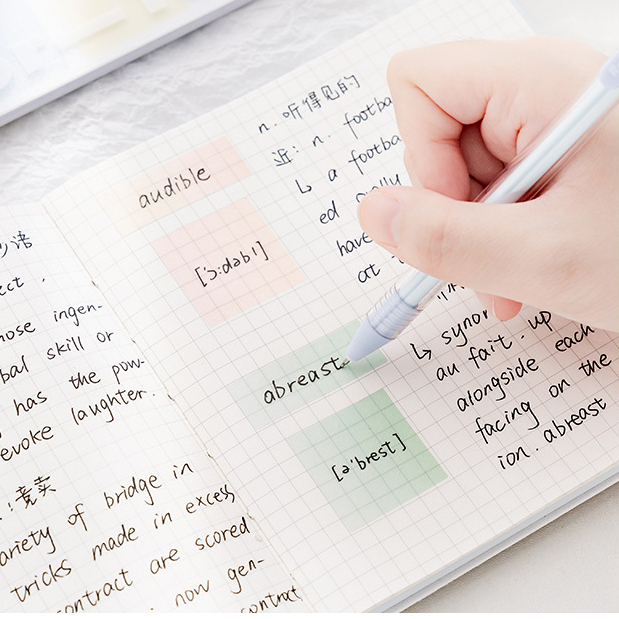 语
ect.
ose ingen-
bal skill or
has the pow-
evoke laughter.
! 竞卖
ariety of bridge in
tricks made in excess
contract are scored
now gen-
contract
audible
['ɔ:dəbl]
n. 听得见的
近: n. footba
↳ a footba
ed
have
abreast
[ə'brest]
↳ synon
au fait. up
alongside each
facing on the
ion. abreast